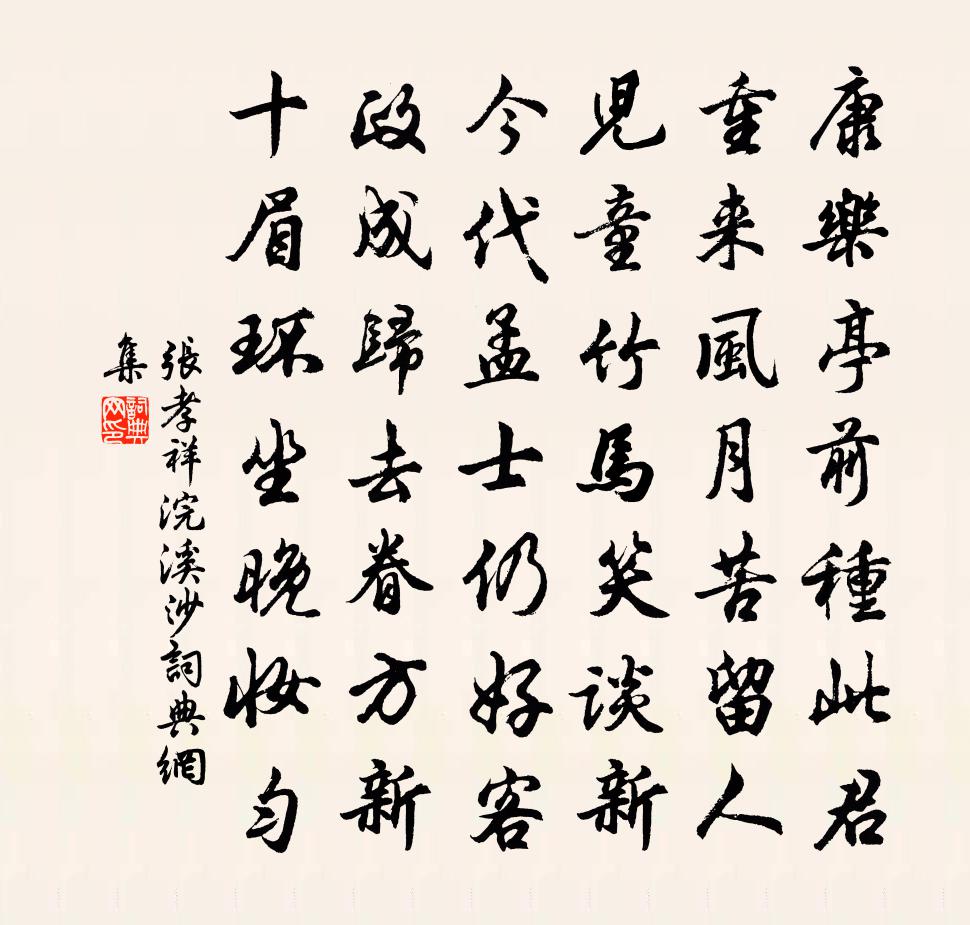 康樂亭前種此君
重来風月苦留人
児童竹馬笑談新
今代孟士仍好客
政成歸去眷方新
十眉环坐晚妆匀
張孝祥浣溪沙詞典網
集
詞典
网印